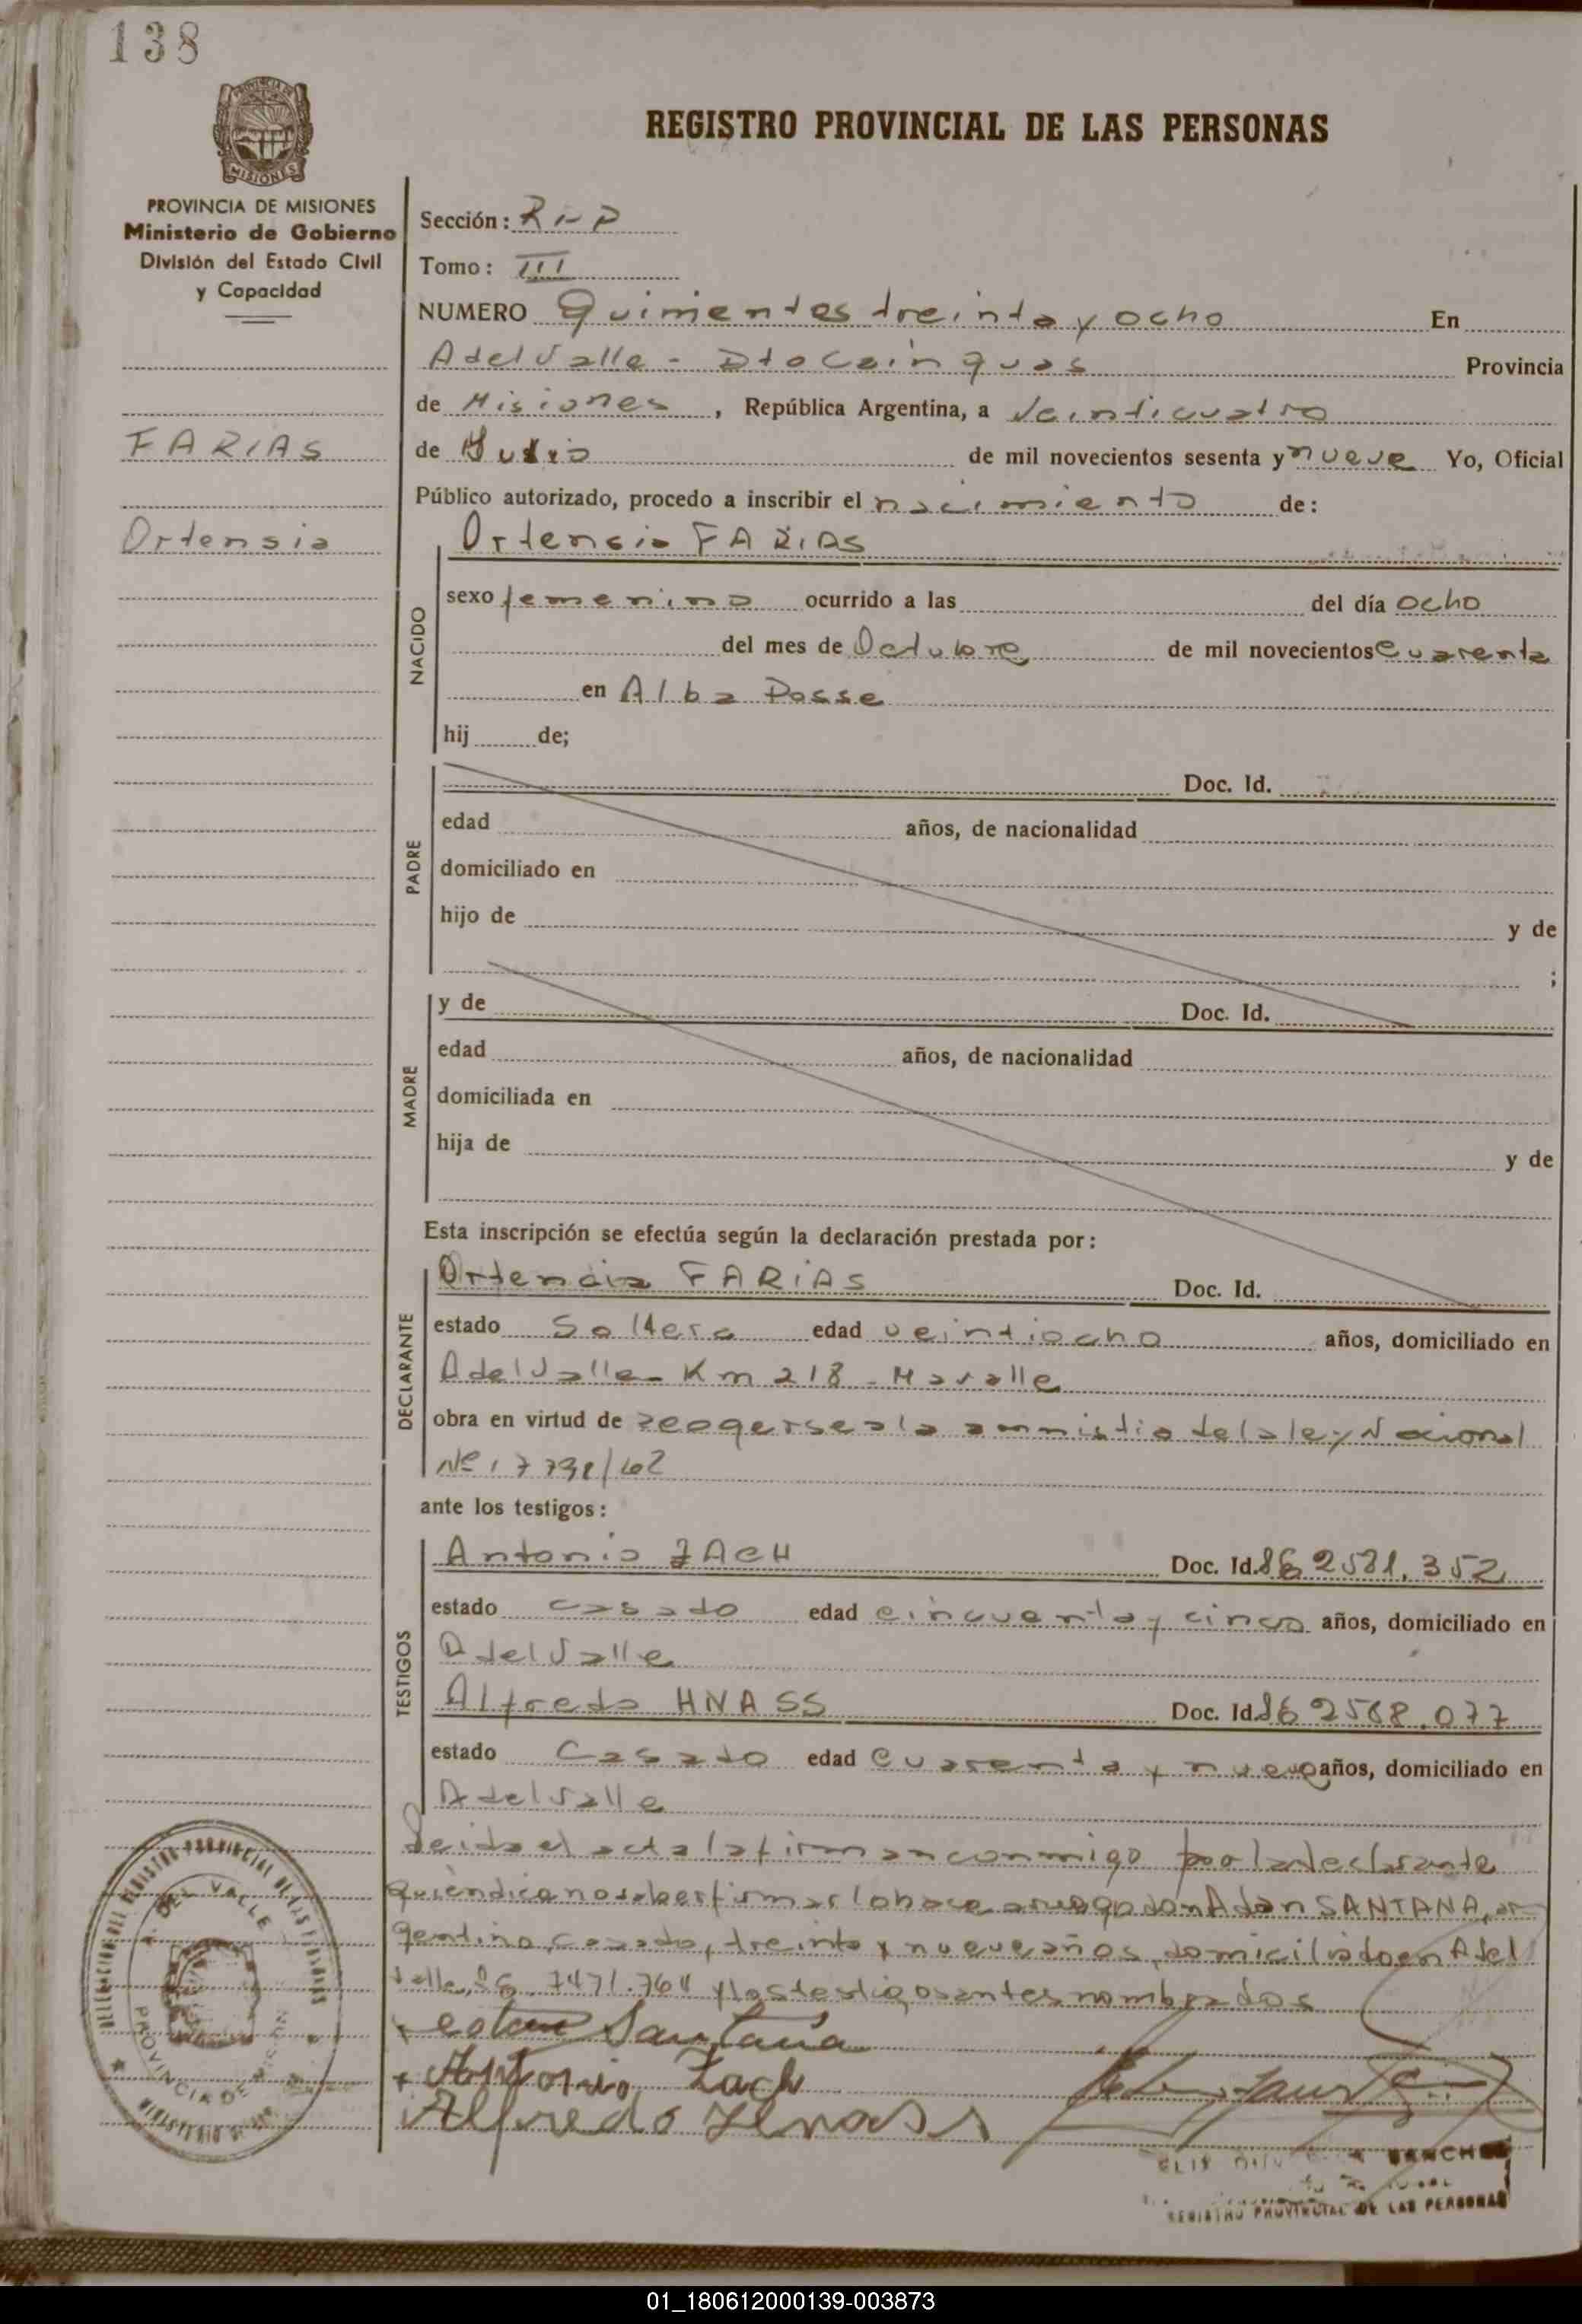 138
PROVINCIA DE
MISIONES
REGISTRO PROVINCIAL DE LAS PERSONAS
PROVINCIA DE MISIONES
Ministerio de Gobierno
División del Estado Civil
y Capacidad
FARIAS
Ortensia
Sección:
Tomo: III
NUMERO Quinientos treinta y ocho En
A del Valle - Dto Cainguas Provincia
de Misiones, República Argentina, a Veinticuatro
de de mil novecientos sesenta y nueve Yo, Oficial
Público autorizado, procedo a inscribir el nacimiento de:
NACIDO
Ortensia FARIAS
sexo femenino ocurrido a las del día ocho
del mes de Octubre de mil novecientos cuarenta
en Alba Posse
hij de;
PADRE
Doc. Id.
edad años, de nacionalidad
domiciliado en
hijo de y de
;
MADRE
y de Doc. Id.
edad años, de nacionalidad
domiciliada en
hija de y de
Esta inscripción se efectúa según la declaración prestada por:
DECLARANTE
Ortencia FARIAS Doc. Id.
estado Soltera edad veintiocho años, domiciliado en
A del Valle - Km 218 -
obra en virtud de a la amnistia de la ley Nacional
Nº
ante los testigos:
TESTIGOS
Antonio ZACH Doc. Id.
estado casado edad cincuenta y cinco años, domiciliado en
A del Valle
Alfredo HNASS Doc. Id.
estado Casado edad cuarenta y nueve años, domiciliado en
A del Valle
Leida el acta la firman conmigo por la declarante
quien dice no saber firmar lo hace a ruego don Adan SANTANA, ar
gentino, casado, treinta y nueve años, domiciliado en A del
Valle, 7471.764 y los testigos antes nombrados
Santana
Antonio Zach
Alfredo Hnass
A. DEL VALLE
PROVINCIA DE
REGISTRO PROVINCIAL DE LAS PERSONAS
01_180612000139-003873